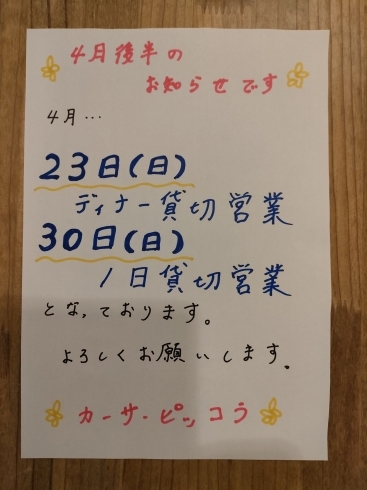 4月後半の
お知らせです
4月…
23日(日)
ディナー貸切営業
30日(日)
1日貸切営業
となっております。
よろしくお願いします。
カーサ・ピッコラ